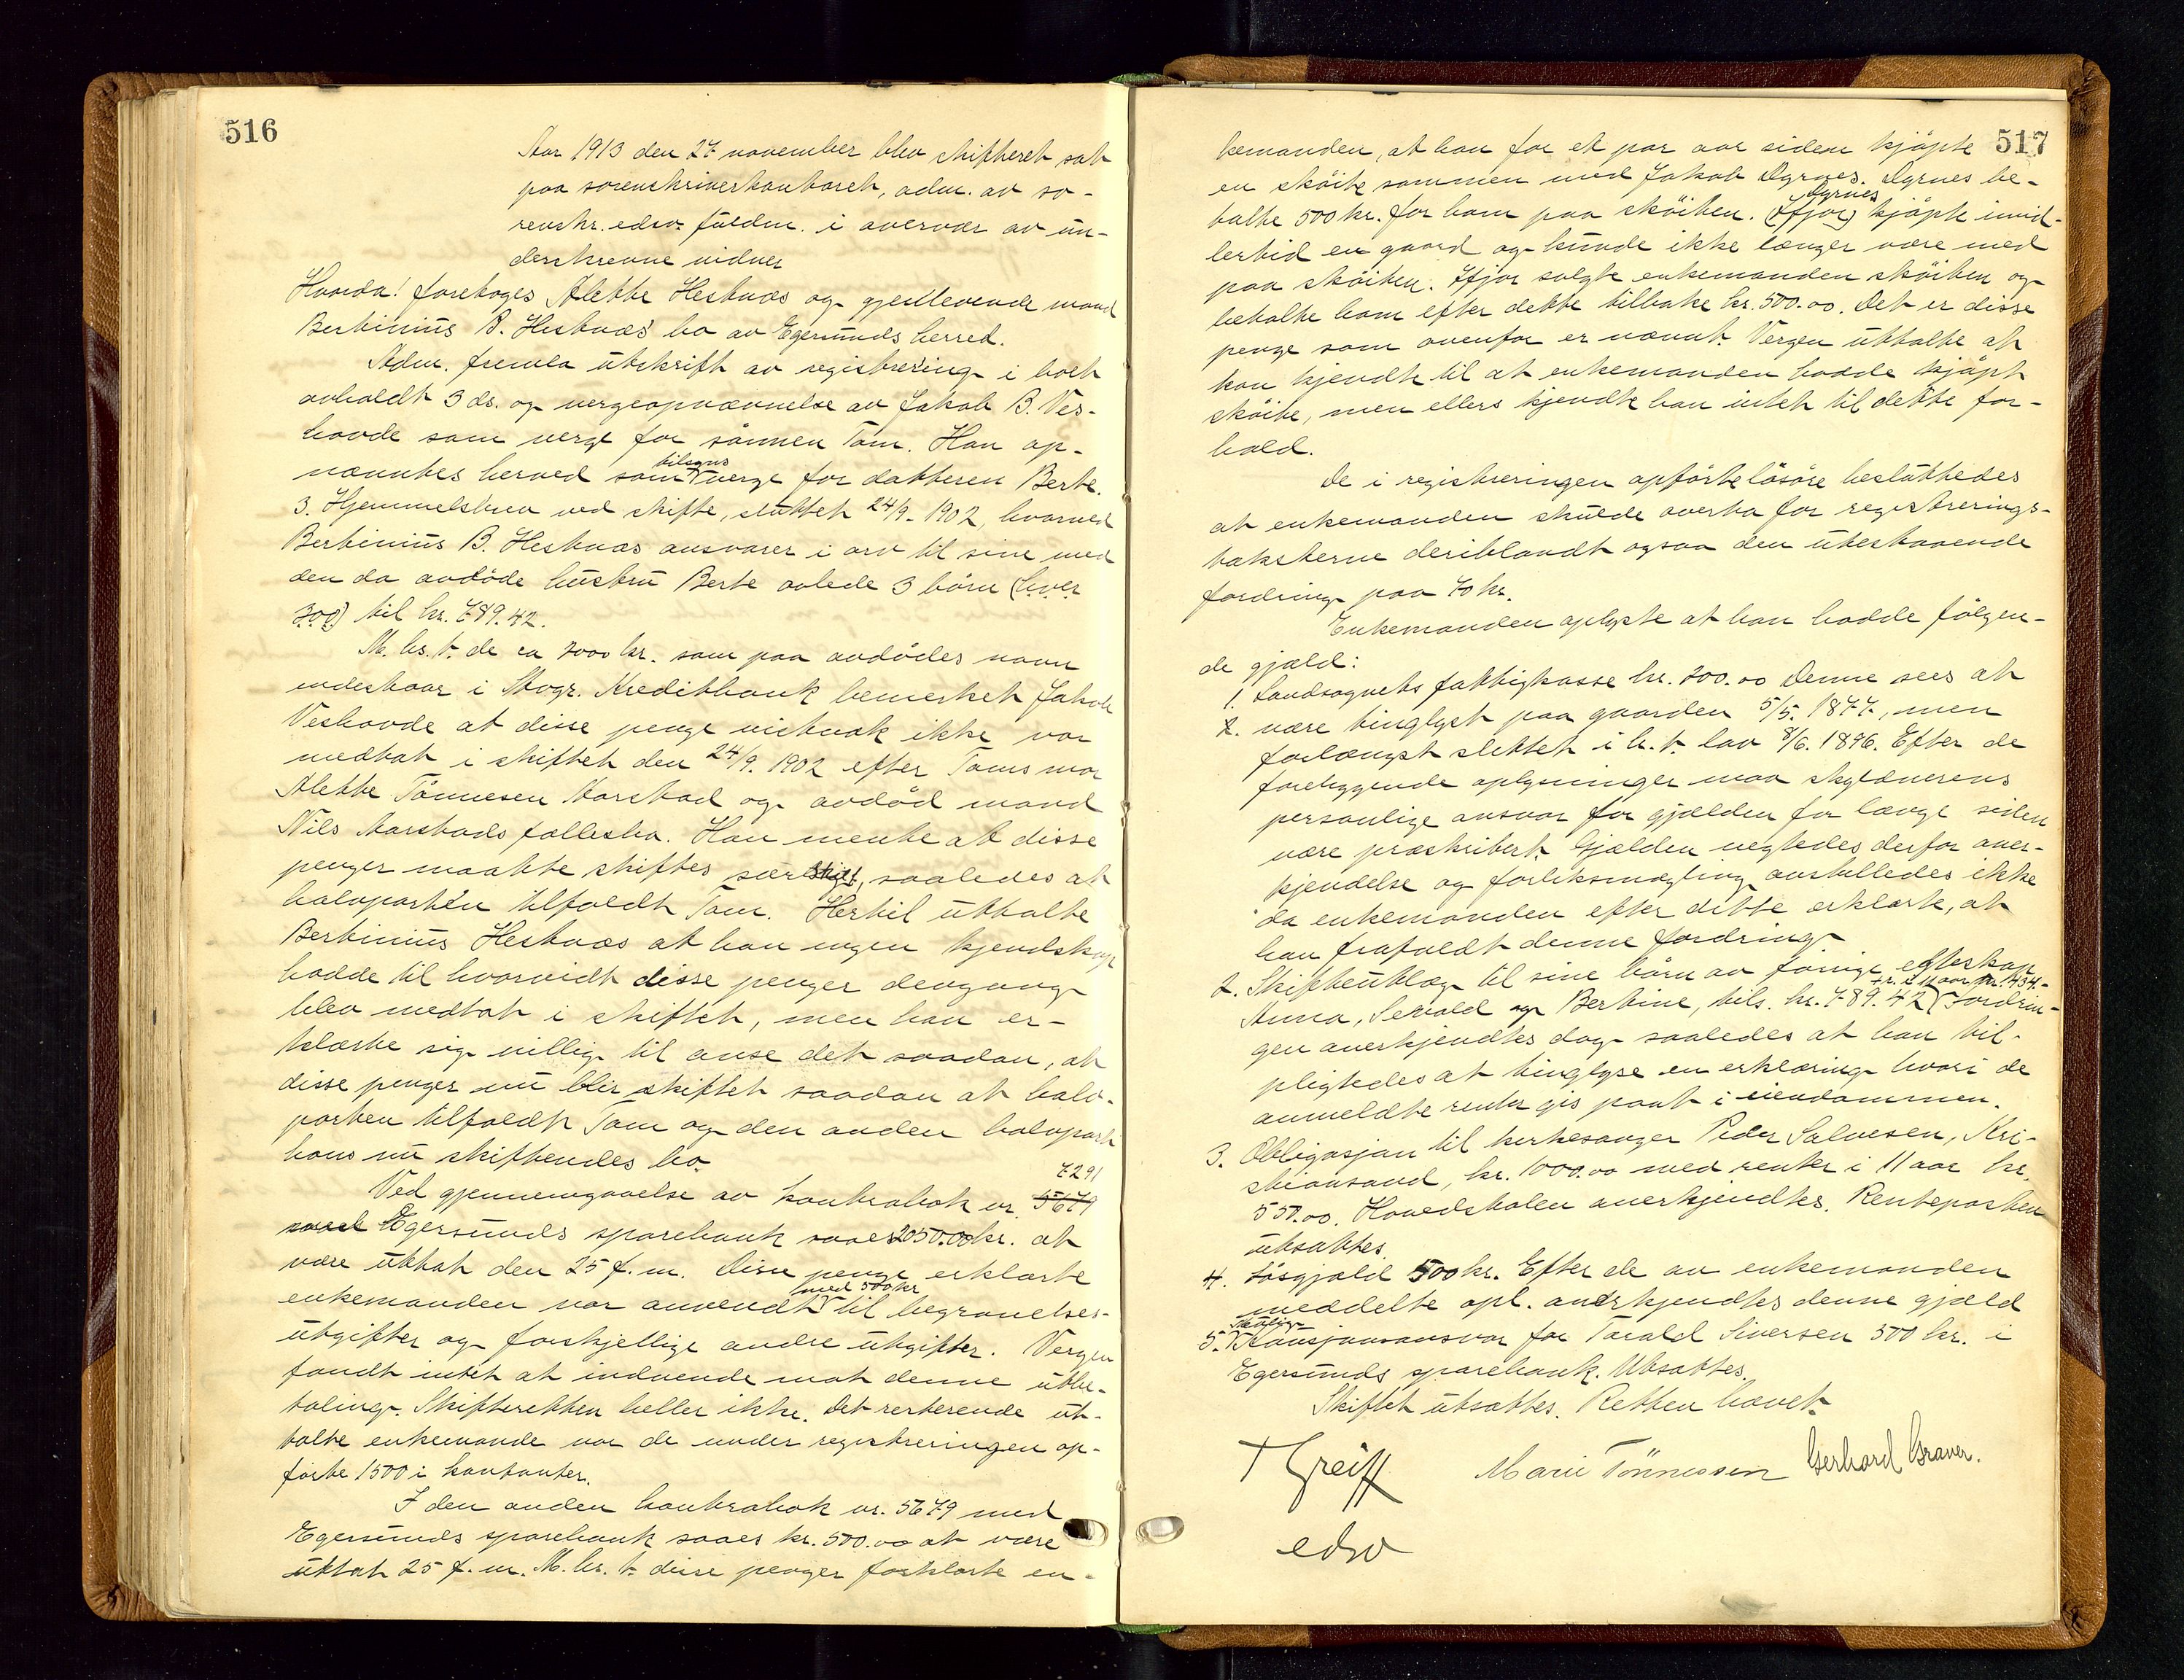 516
Aar 1913 den 27 november blev skifteret sat
paa sorenskriverkontoret, adm. av so-
renskr. edsv. fuldm. i overvær av un-
derskrevne vidner
Hvorda! foretoges Alette Hestnæs og gjenlevende mand
Bertinius B. Hestnæs' bo av Egersunds herred.
Adm. fremla utskrift av registrering i boet
avholdt 3 ds. og vergeopnævnelse av Jakob B. Ves-
hovde som verge for sønnen Tom. Han op-
nævntes herved som tilsyns verge for datteren Berte.
3. Hjemmelsbrev ved skifte, sluttet 24/9. 1902, hvorved
Bertinius B. Hestnæs ansvarer i arv til sine med
den da avdøde hustru Berte avlede 3 børn (hver
300) til kr. 789.42.
M. hs. t. de ca 3000 kr. som paa avdødes navn
indestaar i Stvgr. Kreditbank bemerket Jakob
Veshovde at disse penge vistnok ikke var
medtat i skiftet den 24/9. 1902 efter Toms mor
Alette Tønnesen Aarstad og avdød mand
Nils Aarstads fællesbo. Han mente at disse
penger maatte skiftes særskilt, saaledes at
halvparten tilfaldt Tom. Hertil uttalte
Bertinius Hestnæs at han ingen kjendskap
hadde til hvorvidt disse penger dengang
blev medtat i skiftet, men han er-
klærte sig villig til anse det saadan, at
disse penger nu blir skiftet saadan at halv-
parten tilfaldt Tom og den anden halvpart
hans nu skiftendes bo.
Ved gjennemgaaelse av kontrabok nr. 5679 7291
med Egersunds sparebank saaes 2050.00 kr. at
være uttat den 25 f. m. Disse penge erklærte
enkemanden var anvendt med 500 kr til begravelses-
utgifter og forskjellige andre utgifter. Vergen
fandt intet at indvende mot denne utbe-
taling. Skifteretten heller ikke. Det resterende ut-
talte enkemande var de under registreringen op-
førte 1500 i kontanter.
I den anden kontrabok nr. 5679 med
Egersunds sparebank saaes kr. 500.00 at være
uttat 25 f. m. M. hs. t. disse penger forklarte en-
517
kemanden, at han for et par aar siden kjøpte
en skøite sammen med Jakob Dyrnes. Dyrnes be-
talte 500 kr. for ham paa skøiten. (Ifjor) Dyrnes kjøpte imid-
lertid en gaard og kunde ikke længer være med
paa skøiten. Ifjor solgte enkemanden skøiten og
betalte ham efter dette tilbake kr. 500.00. Det er disse
penge som ovenfor er nævnt. Vergen uttalte at
han kjendte til at enkemanden hadde kjøpt
skøite, men ellers kjendte han intet til dette for-
hold.
De i registreringen opførte løsøre besluttedes
at enkemanden skulde overta for registrerings-
taksterne deriblandt ogsaa den utestaaende
fordring paa 70 kr.
Enkemanden oplyste at han hadde følgen-
de gjæld:
1. Landsognets fattigkasse kr. 200.00 Denne sees at
2. være tinglyst paa gaarden 5/5. 1877., men
forlængst slettet i h. t. lov 8/6. 1896. Efter de
foreliggende oplysninger maa skyldnerens
personlige ansvar for gjælden for længe siden
være præskribert. Gjælden negtedes derfor aner-
kjendelse og forliksmegling anstilledes ikke
da enkemanden efter dette erklærte, at
han frafaldt denne fordring.
2. Skifteutlæg til sine børn av forrige egteskap
Anna, Sevald og Bertine, tils. kr. 789.42 + r. i 11 aar kr. 434.- Fordrin-
gen anerkjendtes dog saaledes at han til-
pligtedes at tinglyse en erklæring hvori de
anmeldte renter gis pant i eiendommen.
3. Obligasjon til kirkesanger Peder Salvesen, Kri-
stiansand, kr. 1000.00 med renter i 11 aar kr.
550.00. Hovedstolen anerkjendtes. Renteposten
utsattes.
4. Løsgjæld 500 kr. Efter de av enkemanden
meddelte opl. anerkjendtes denne gjæld
5. Mulig Kausjonsansvar for Tarald Siversen 300 kr. i
Egersunds sparebank. Utsattes.
Skiftet utsattes. Retten hævet.
T Greiff Marie Tönnessen Gerhard Graver.
edsv